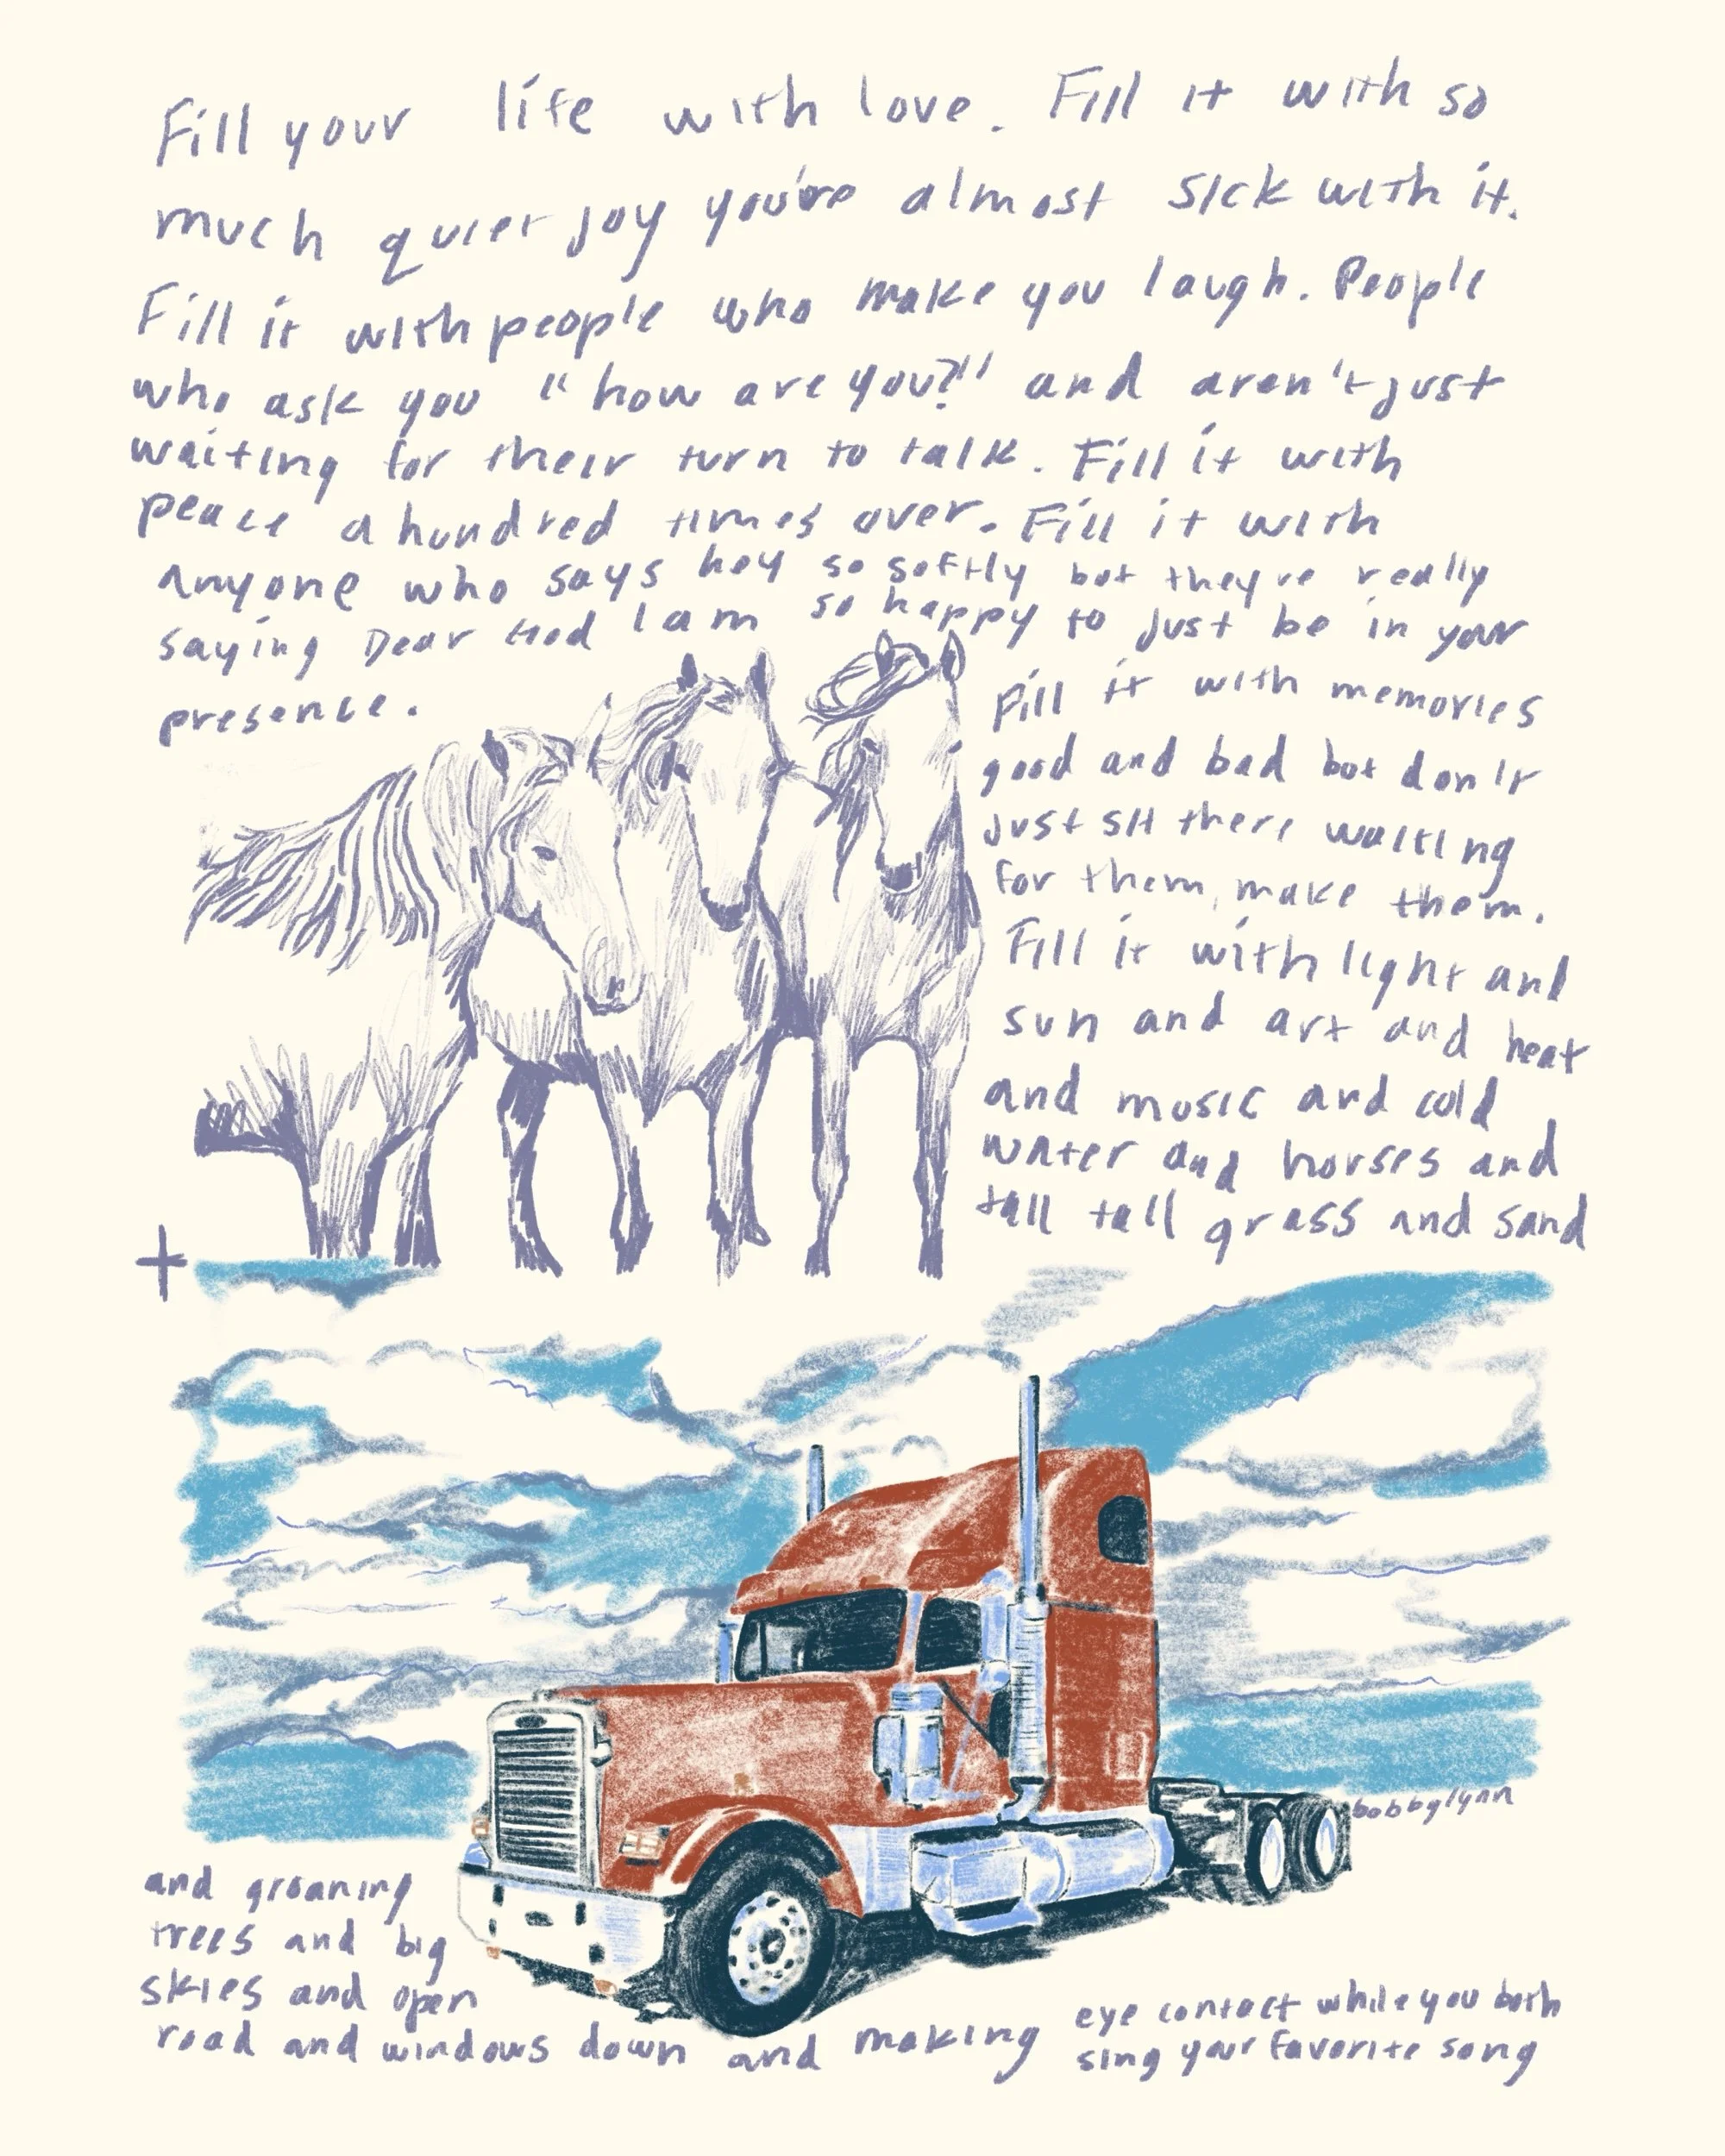 Fill your life with love. Fill it with so
much quiet joy you're almost sick with it.
Fill it with people who make you laugh. People
who ask you "how are you?" and aren't just
waiting for their turn to talk. Fill it with
peace a hundred times over. Fill it with
anyone who says hey so softly but they're really
saying Dear God I am so happy to just be in your
presence.
Fill it with memories
good and bad but don't
just sit there waiting
for them, make them.
Fill it with light and
sun and art and heat
and music and cold
water and horses and
tall tall grass and sand
bobbylynn
and groaning
trees and big
skies and open
road and windows down and making
eye contact while you both
sing your favorite song